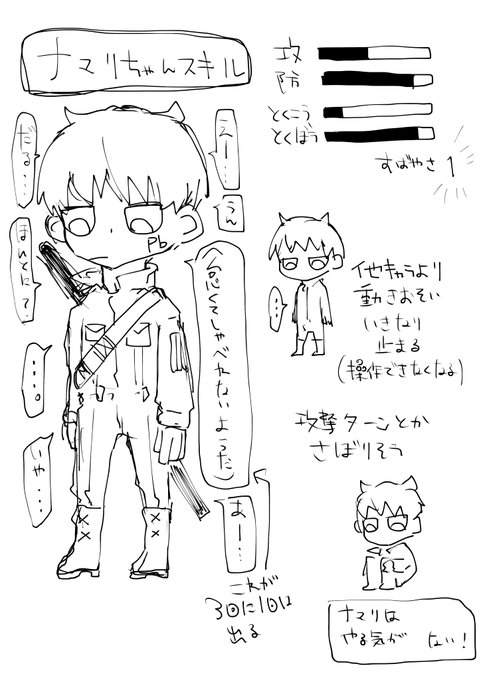 ナマリちゃんスキル
攻
防
とくこう
とくぼう
すばやさ 1
だる・・・
え—・・・
うん
まかせて・
Pb
(怠くてしゃべれないようだ)
・・・。
いや・・・
あー・・・
これが
3回に1回は
出る
・・・
他キャラより
動きおそい
いきなり
止まる
(操作できなくなる)
攻撃ターンとか
さぼりそう
ナマリは
やる気が ない!